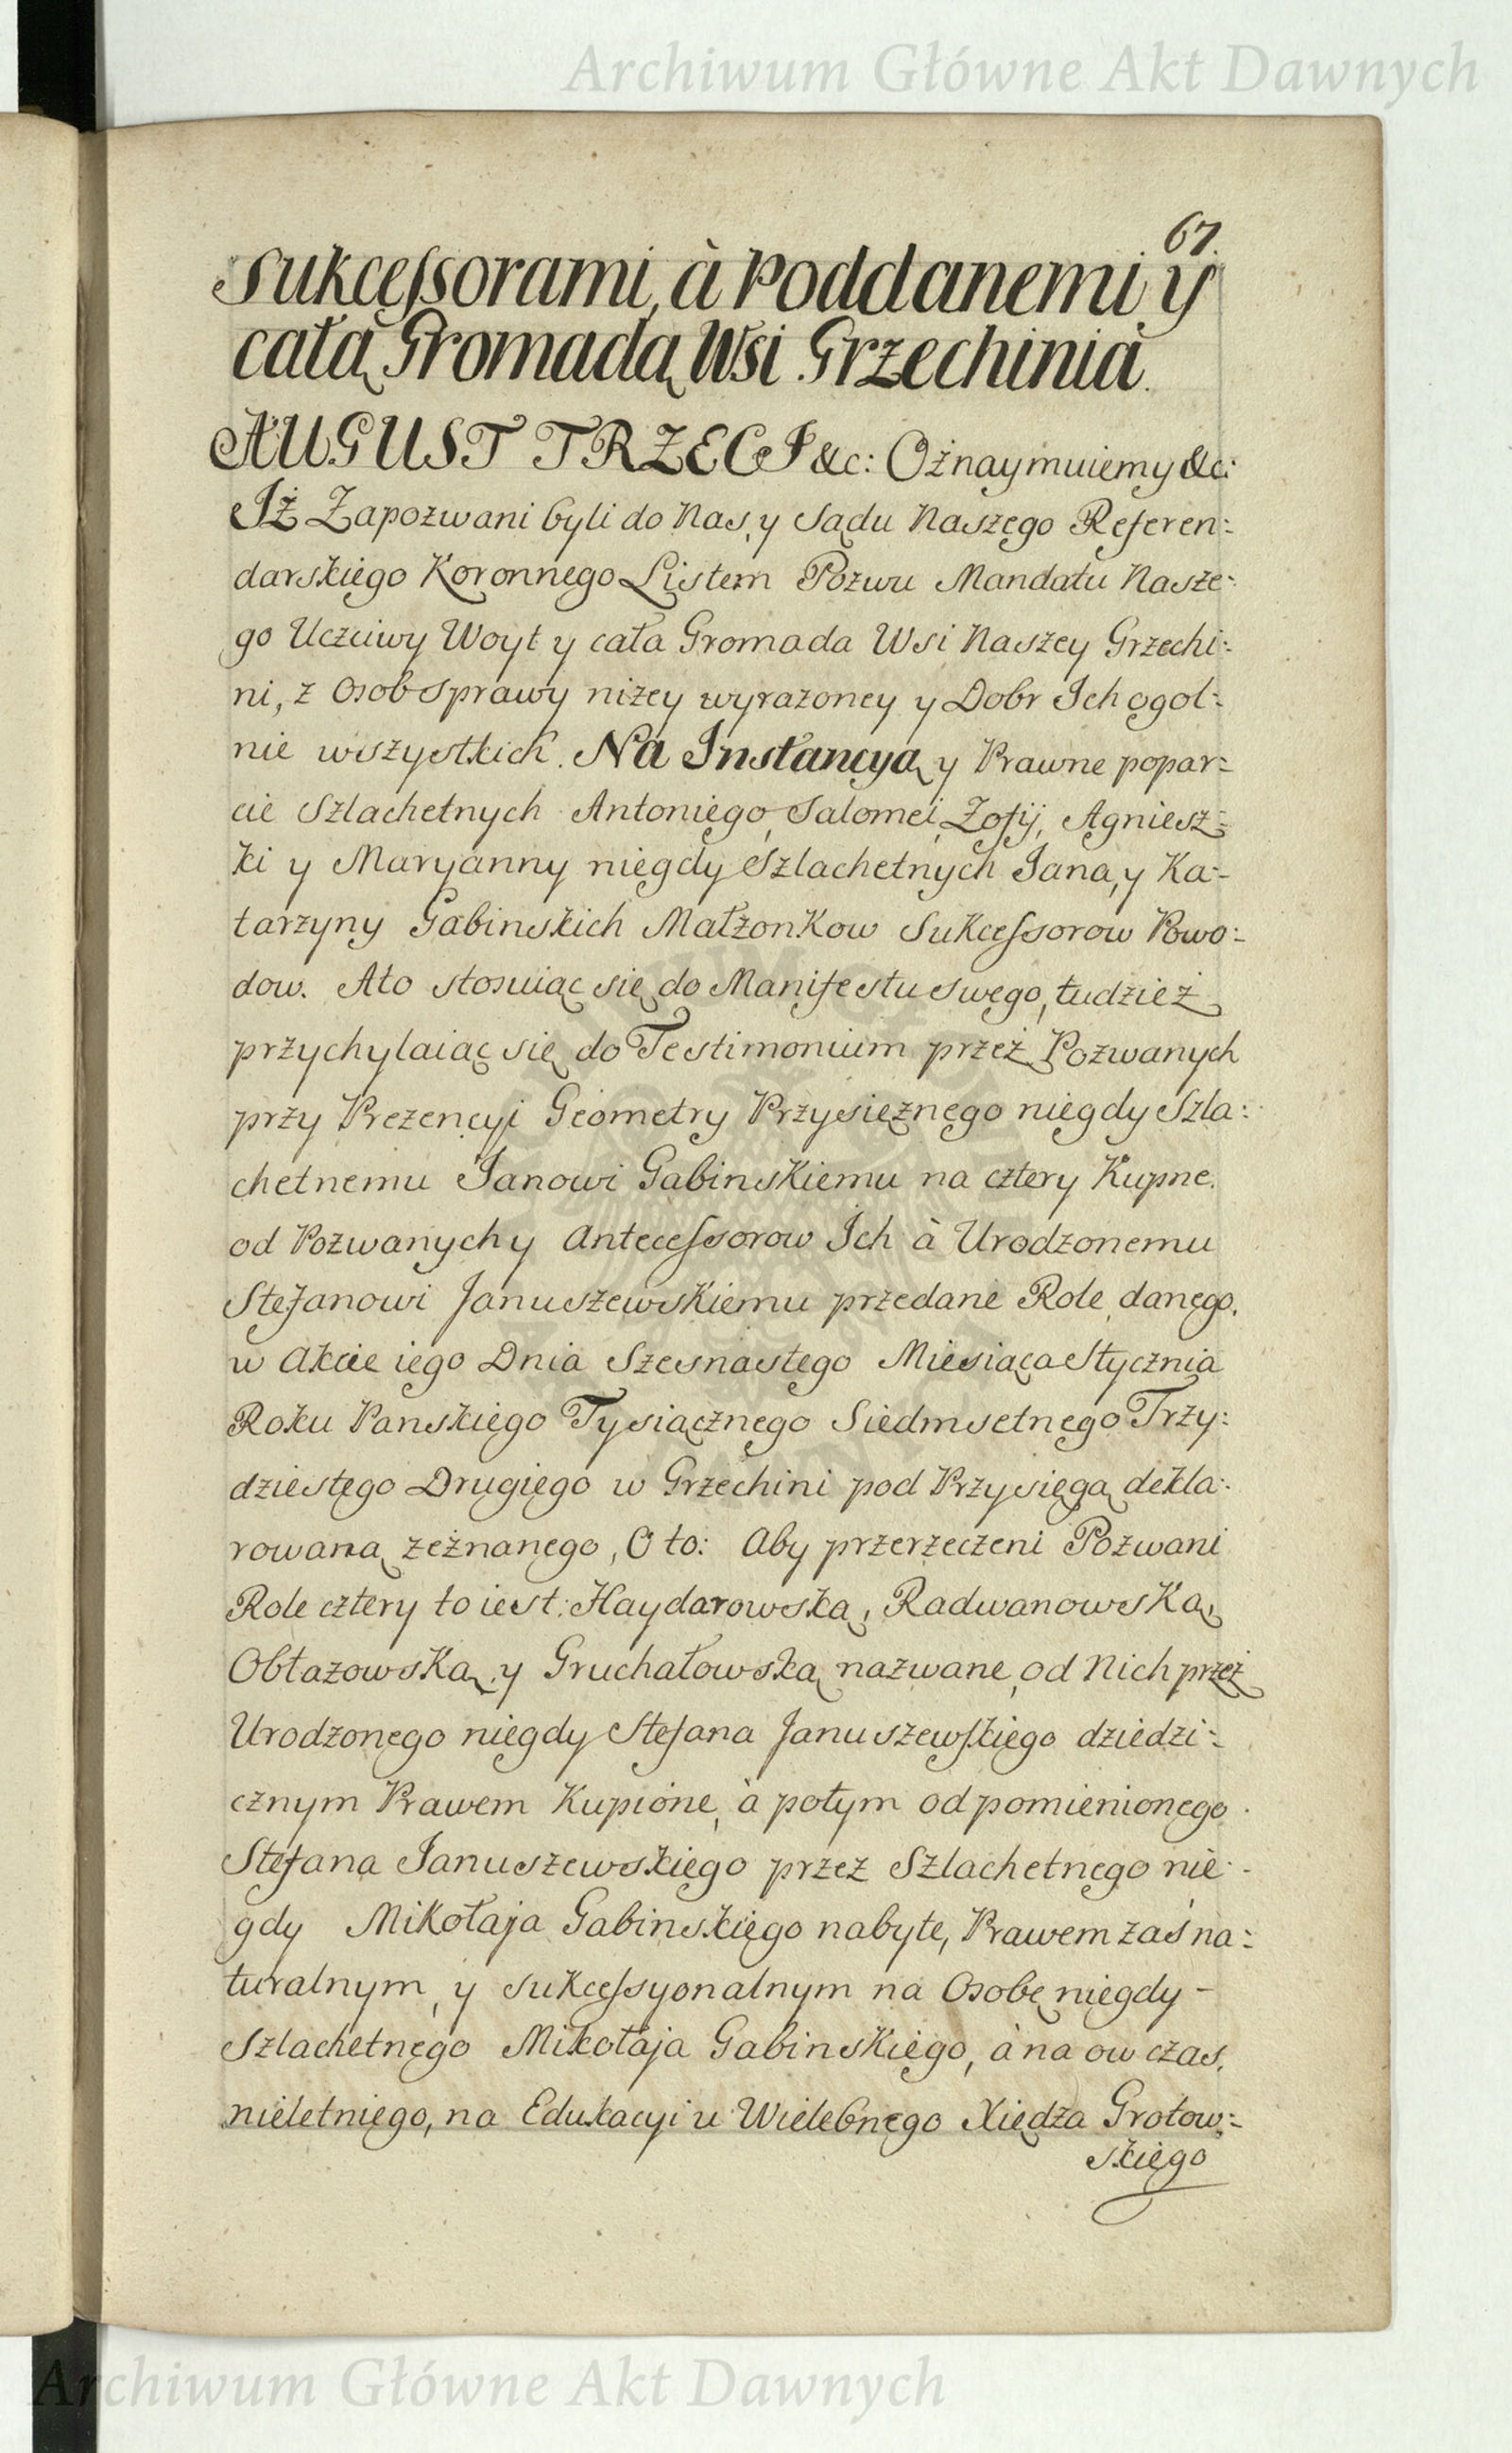 Archiwum Główne Akt Dawnych
67.
Sukcessorami, à Poddanemi, y
całą Gromadą Wsi Grzechinià.
AUGUST TRZECI &c: Ożnaymuiemy &c:
Iż Zapozwani byli do Nas, y Sądu Naszego Referen:
darskiego Koronnego Listem Pozwu Mandatu Nasze:
go Uczciwy Woyt y cała Gromada Wsi Naszey Grzechi:
ni, z Osob Sprawy niżey wyrażoney y Dobr Ich ogol:
nie wszystkich. Na Instancyą y Prawne popar:
cie Szlachetnych Antoniego, Salomei, Zofij, Agniesz:
ki y Maryanny niegdy Szlachetnych Jana, y Ka:
tarzyny Gabinskich Małżonkow Sukcessorow Powo:
dow. Ato stosuiąc się do Manifestu swego, tudzież
przychylaiąc się do Testimonium przez Pozwanych
przy Prezencyi Geometry Przysięznego niegdy Szla:
chetnemu Janowi Gabinskiemu na cztery Kupne
od Pozwanych y Antecessorow Ich à Urodzonemu
Stefanowi Januszewskiemu przedane Role, danego,
w Akcie iego Dnia Szesnastego Miesiąca Stycznia
Roku Panskiego Tysiącznego Siedmsetnego Trzy:
dziestego Drugiego w Grzechini pod Przysięgą dekla:
rowaną zeżnanego, O to: Aby przerzeczeni Pozwani
Role cztery to iest: Haydarowską, Radwanowską,
Obłazowską, y Gruchałowską nazwane, od Nich przez
Urodzonego niegdy Stefana Januszewskiego dziedzi:
cznym Prawem Kupione, à potym od pomienionego
Stefana Januszewskiego przez Szlachetnego nie:
gdy Mikołaja Gabinskiego nabyte, Prawem zaś na:
turalnym, y sukcessyonalnym na Osobę niegdy -
Szlachetnego Mikołaja Gabinskiego, à na ow czas,
nieletniego, na Edukacyi u Wielebnego Xiędza Grotow:
skiego
Archiwum Główne Akt Dawnych